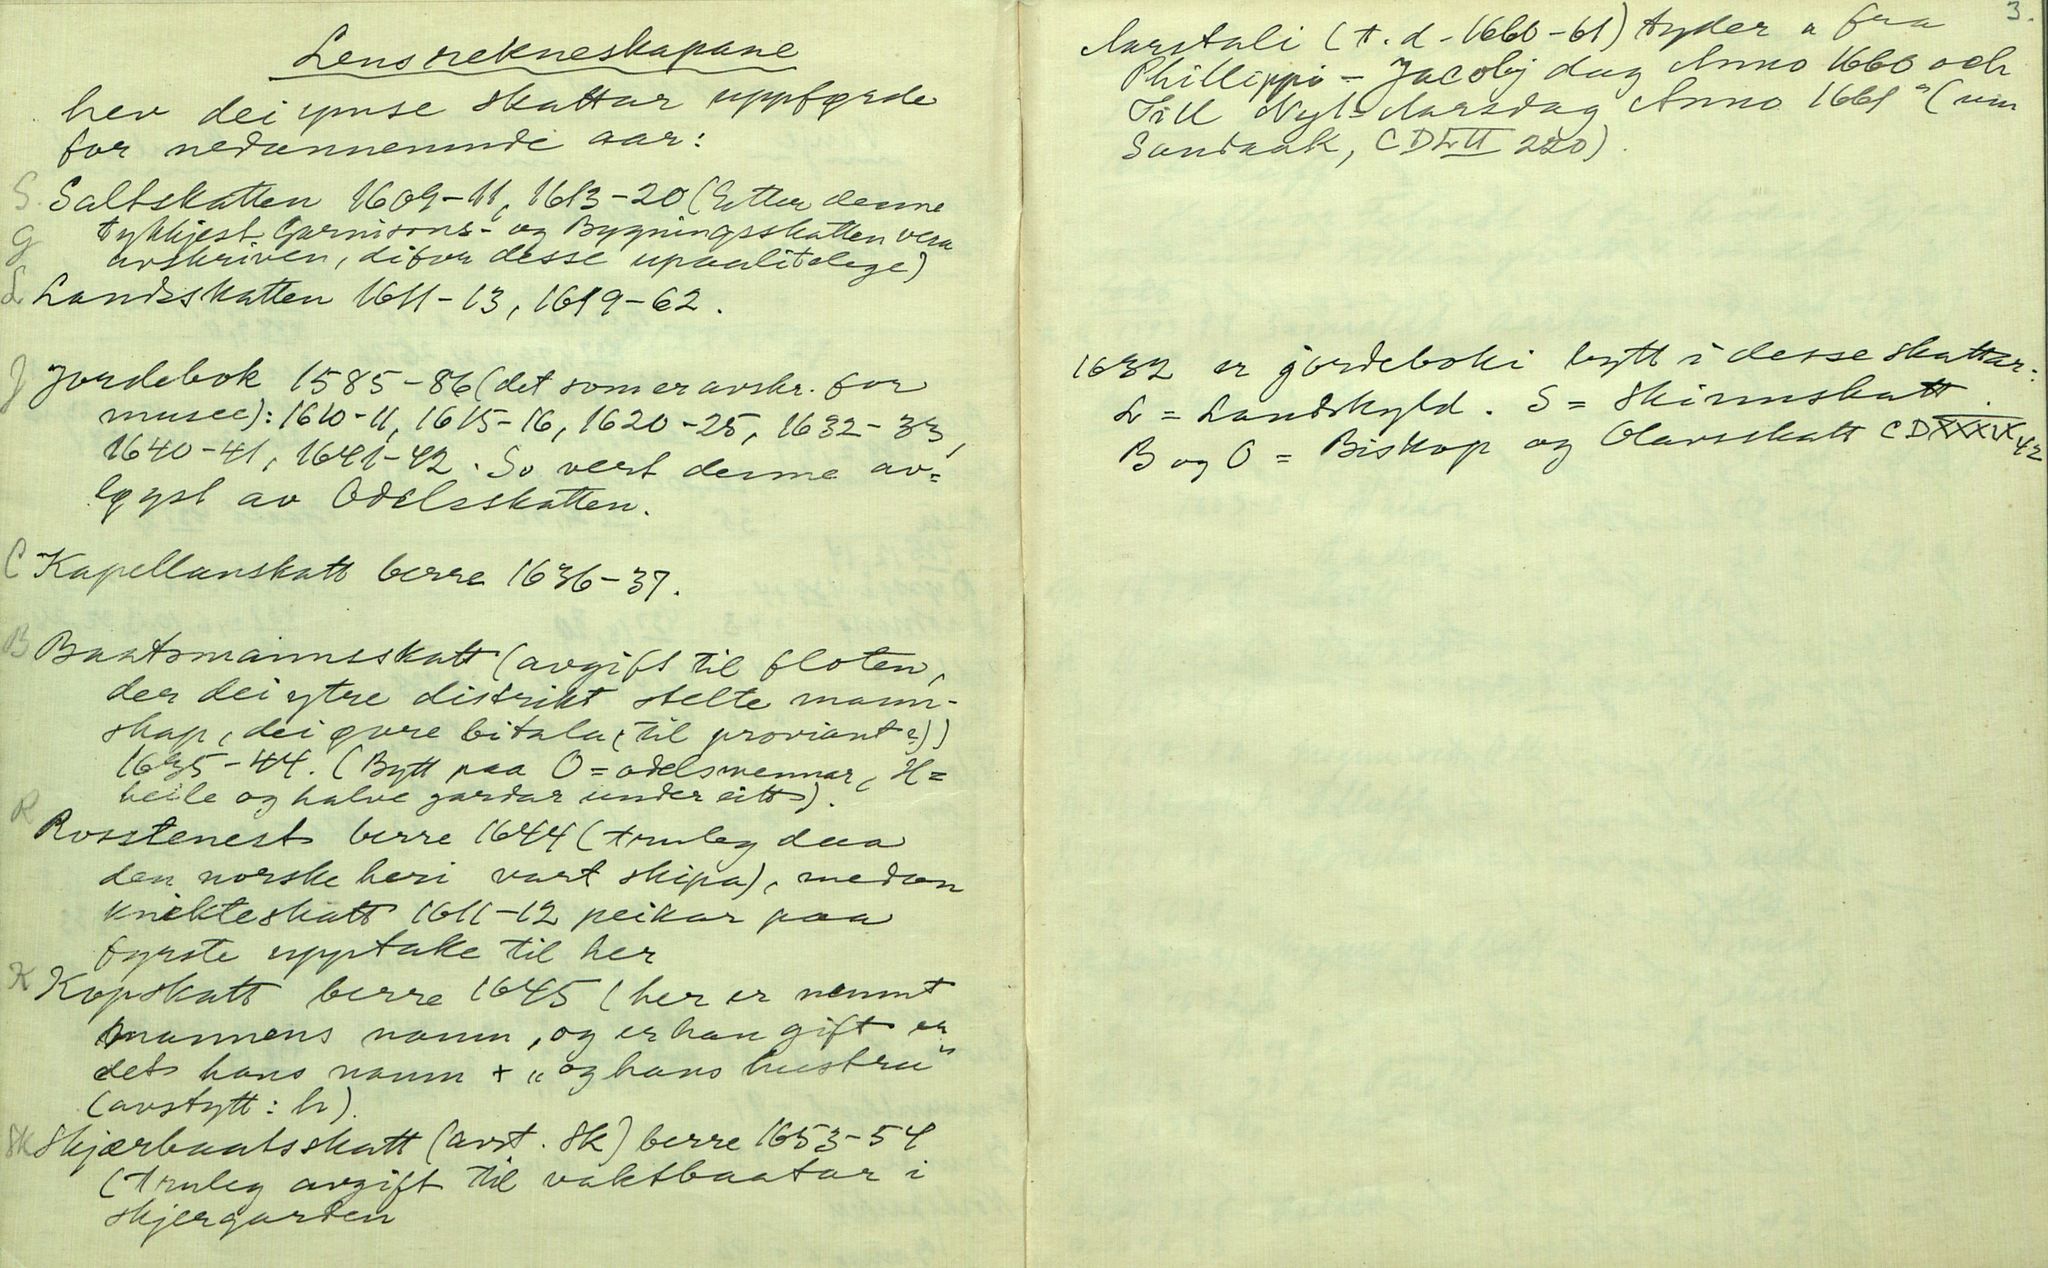 Lensrekneskapane
hev dei ymse skattar uppførde
for nedannemnde aar:
S Saltskatten 1609-11, 1613-20 (Etter denne
tykkjest Garnisons- og Bygningsskatten vera
G
avskriven, difor desse upaalitelege)
L Landsskatten 1611-13, 1619-62.
J Jordebok 1585-86 (det som er avskr. for
musee): 1610-11, 1615-16, 1620-25, 1632-33,
1640-41, 1641-42. So vert denne av=
løyst av Odelsskatten.
C Kapellanskatt berre 1636-37.
B Baatsmannsskatt (avgift til floten,
der dei ytre distrikt stelte mann-
skap, dei øvre bitala (til proviant?))
1635-44. (Bytt paa O = odelsmennar, H =
heile og halve gardar under eitt).
R Rosstenest berre 1644 (truleg daa
den norske heri vart skipa), medan
knikteskatt 1611-12 peikar paa
fyrste upptake til her
K Kopskatt berre 1645 (her er nemnt
mannens namn, og er han gift er
det hans namn + „og hans hustru"
(avstytt: h).
Sk Skjærbaatsskatt (avst. Sk) berre 1653-54
(truleg avgift til vaktbaatar i
skjergarden
3.
Aarstali (t. d. 1660-61) tyder „fra
Phillippi - Jacobj dag Anno 1660 och
Till Nyt-Aarsdag Anno 1661" (um
Sandaak, CDLII 220).
1632 er jordeboki bytt i desse skattar:
L = Landskyld. S = Skinnskatt.
B og O = Biskop og Olavsskatt CDXXXIX 42